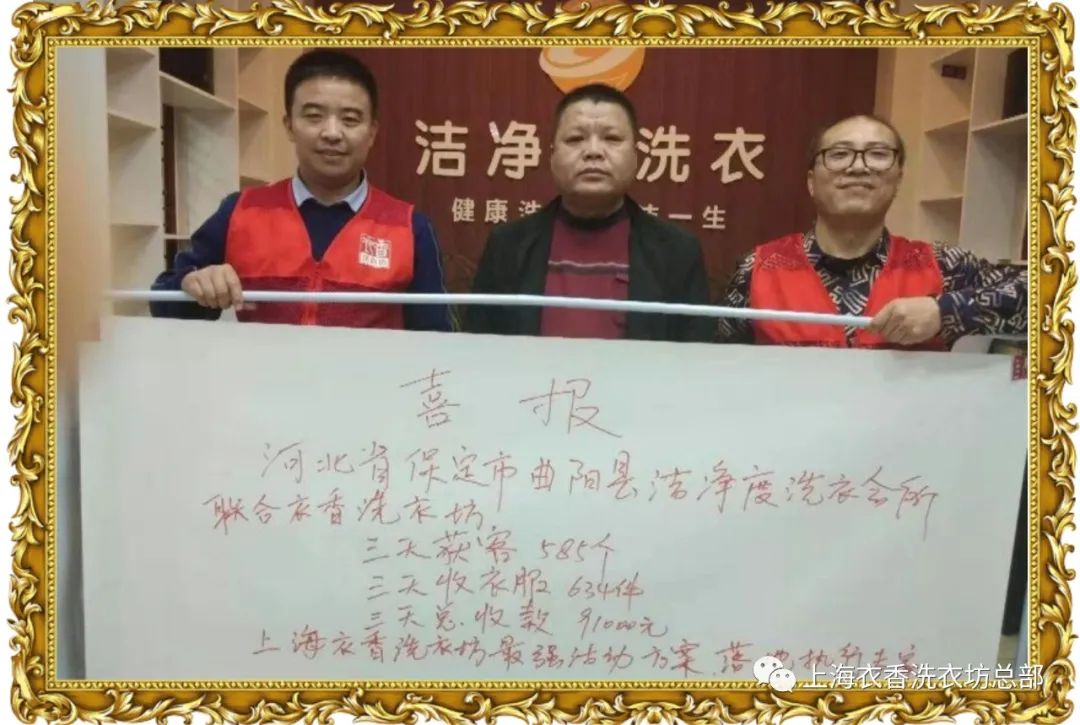 洁净 洗衣
健康洗 一生
喜报
河北省保定市曲阳县洁净度洗衣会所
联合衣香洗衣坊
三天获客 585个
三天收衣服 634件
三天总收款 91000元
上海衣香洗衣坊最强活动方案,落地执行
上海衣香洗衣坊总部